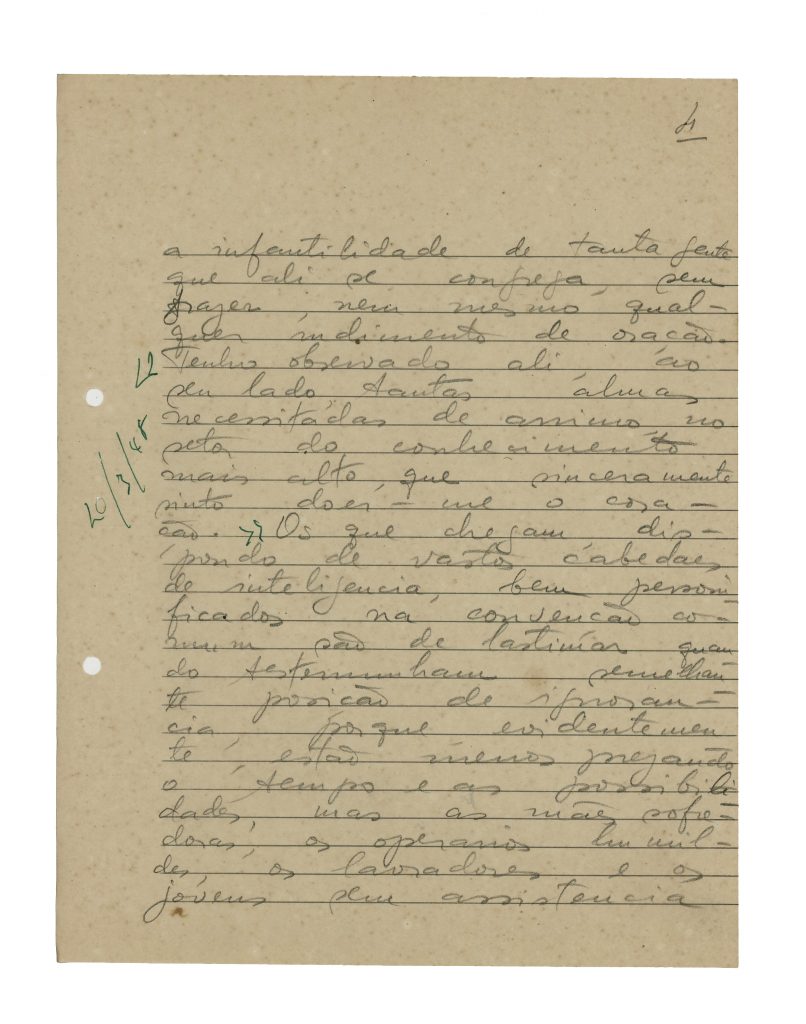 4
a infantilidade de tanta gente
que ali se congrega, sem
trazer, nem mesmo qual-
quer rudimento de oração.
Tenho observado ali, ao
seu lado, tantas almas
necessitadas de animo, no
setor do conhecimento
mais alto, que sinceramente
sinto doer-me o cora-
ção. Os que chegam dis-
pondo de vastos cabedaes
de inteligencia, bem personi-
ficados na convenção co-
mum são de lastimar quan
do testemunham semelhan
te posição de ignoran-
cia, porque evidentemen
te, estão menosprezando
o tempo e as possibili
dades, mas as mães sofre-
doras, os operarios humil-
des, os lavradores e os
jóvens sem assistencia
20/3/48